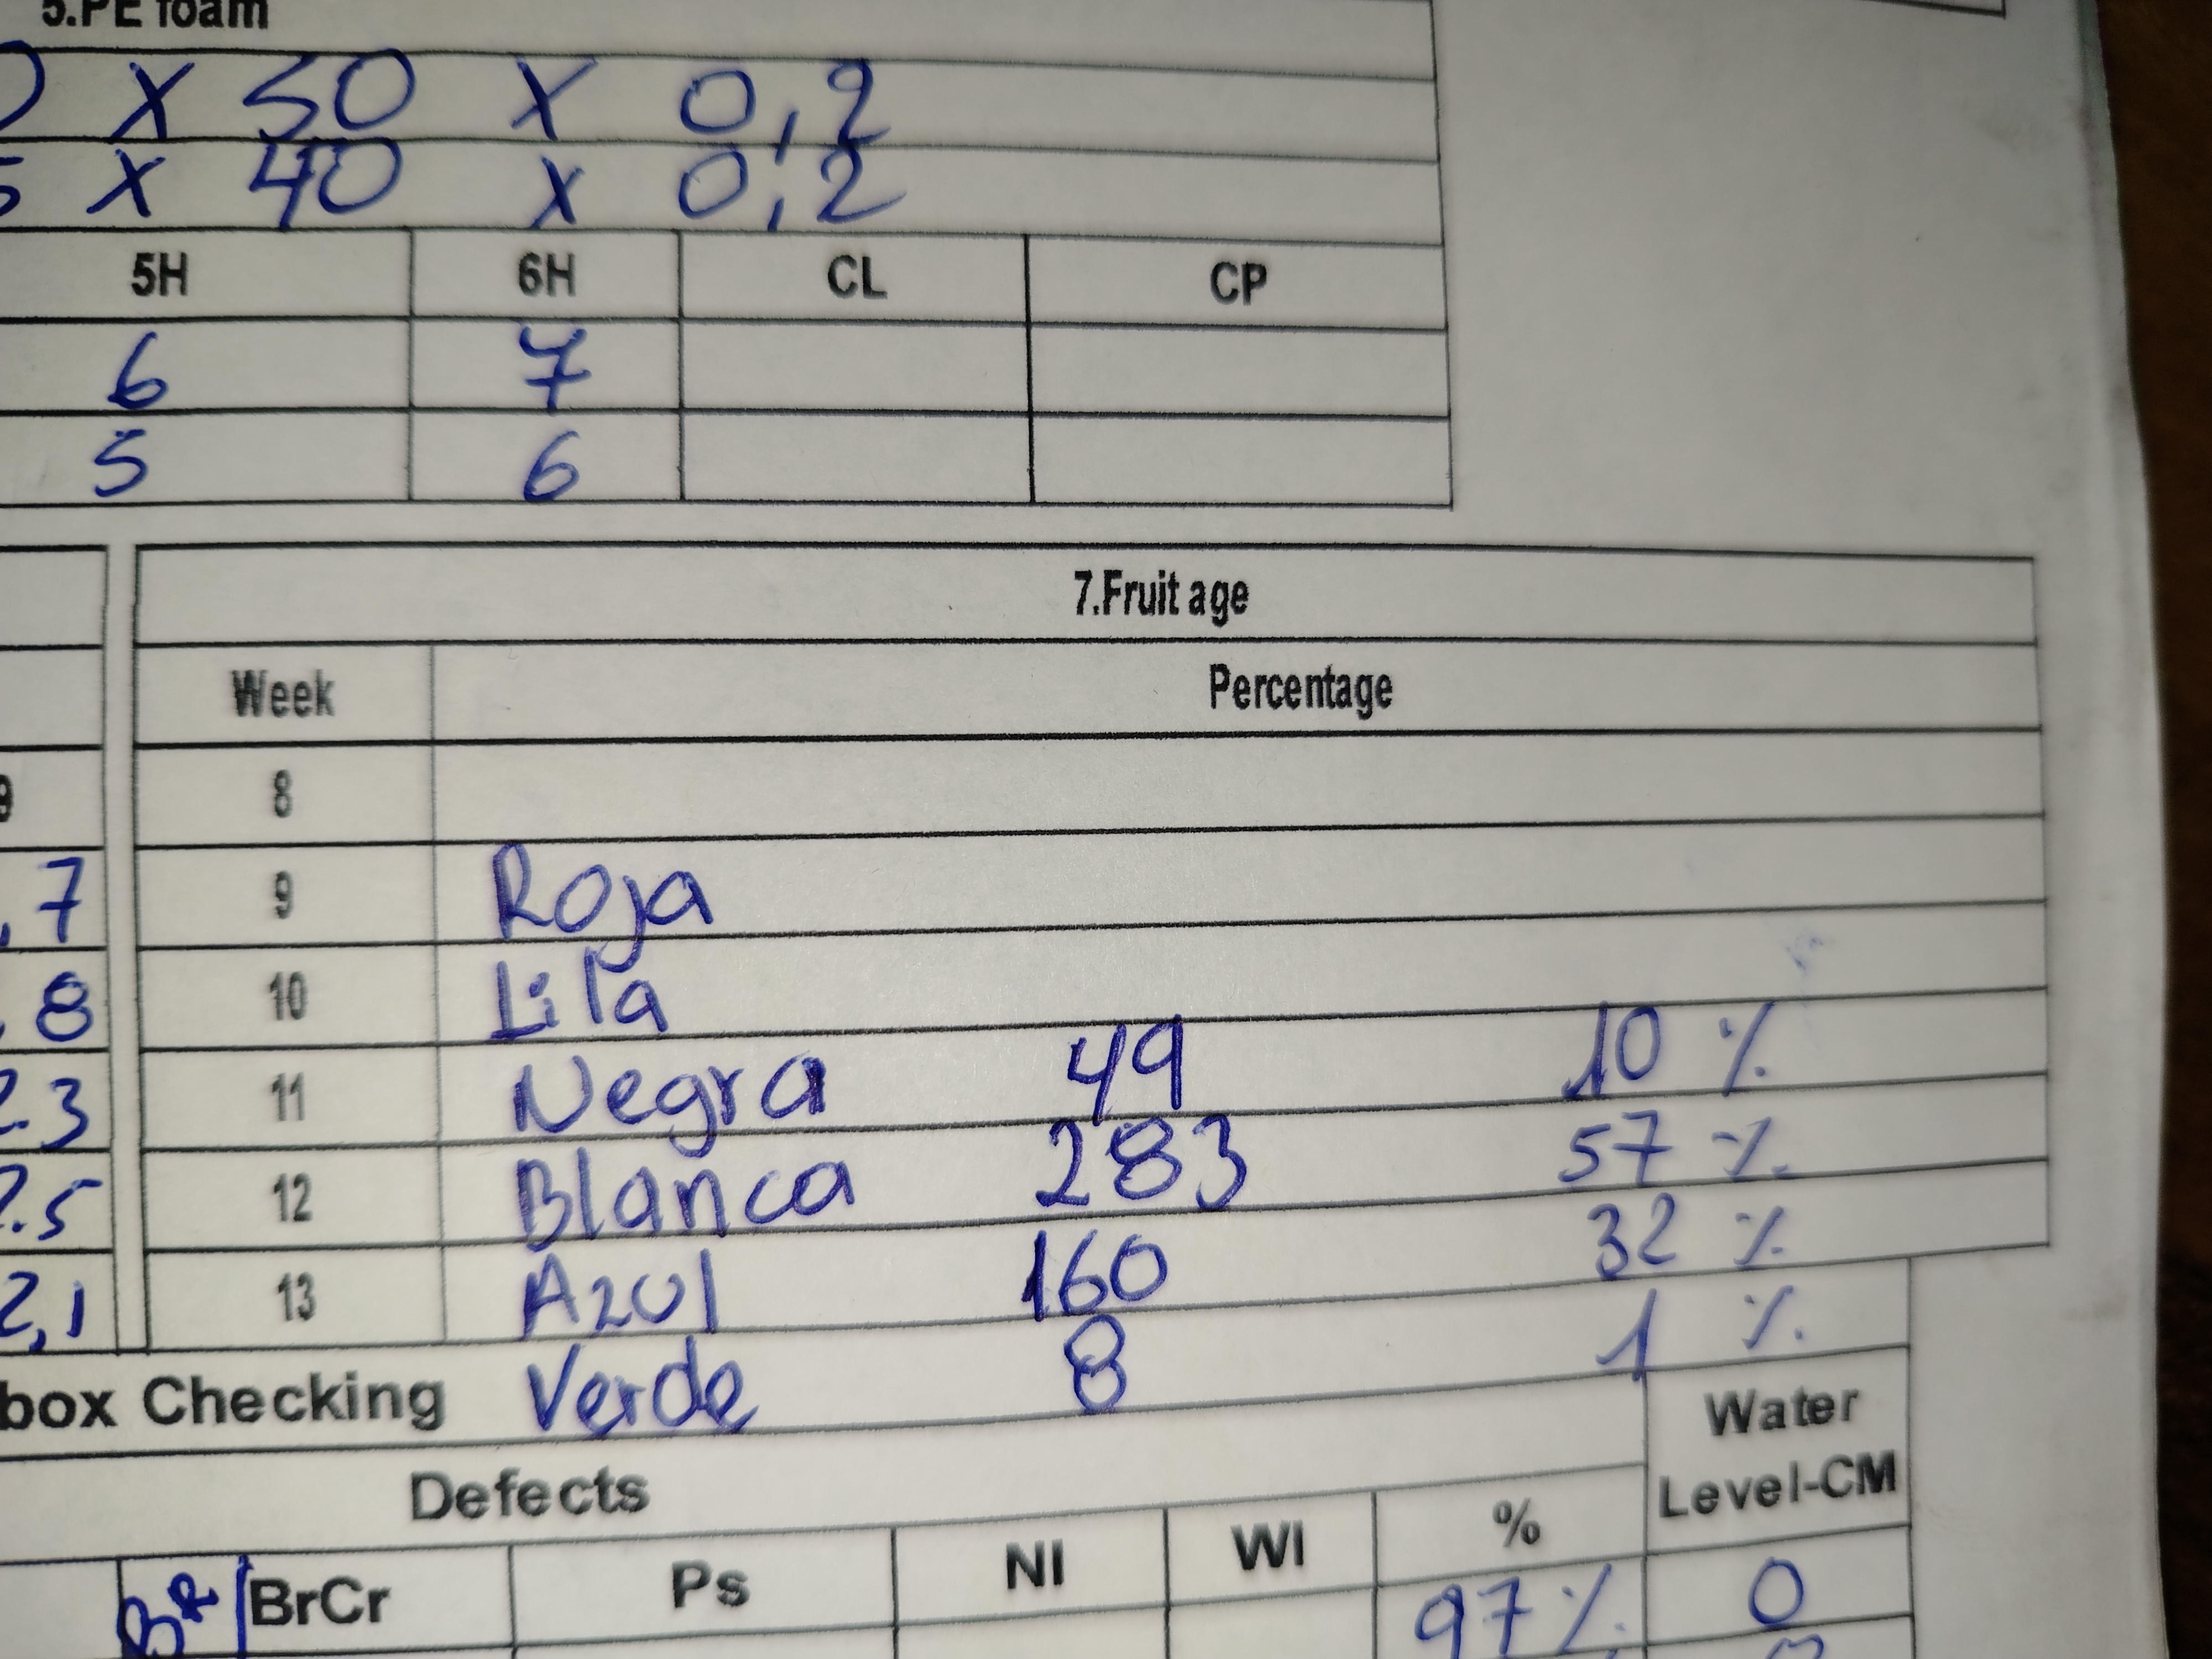 5.PE foam
X 50 X 0,2
X 40 X 0,2
5H 6H CL CP
6 7
5 6
7.Fruit age
Week Percentage
8
7 9 Roja
8 10 Lila
.3 11 Negra 49 10 %
.5 12 Blanca 283 57 %
2,1 13 Azul 160 32 %
box Checking Verde 8 1 %
Defects
Water
Level-CM
BrCr Ps NI WI %
97 % 0